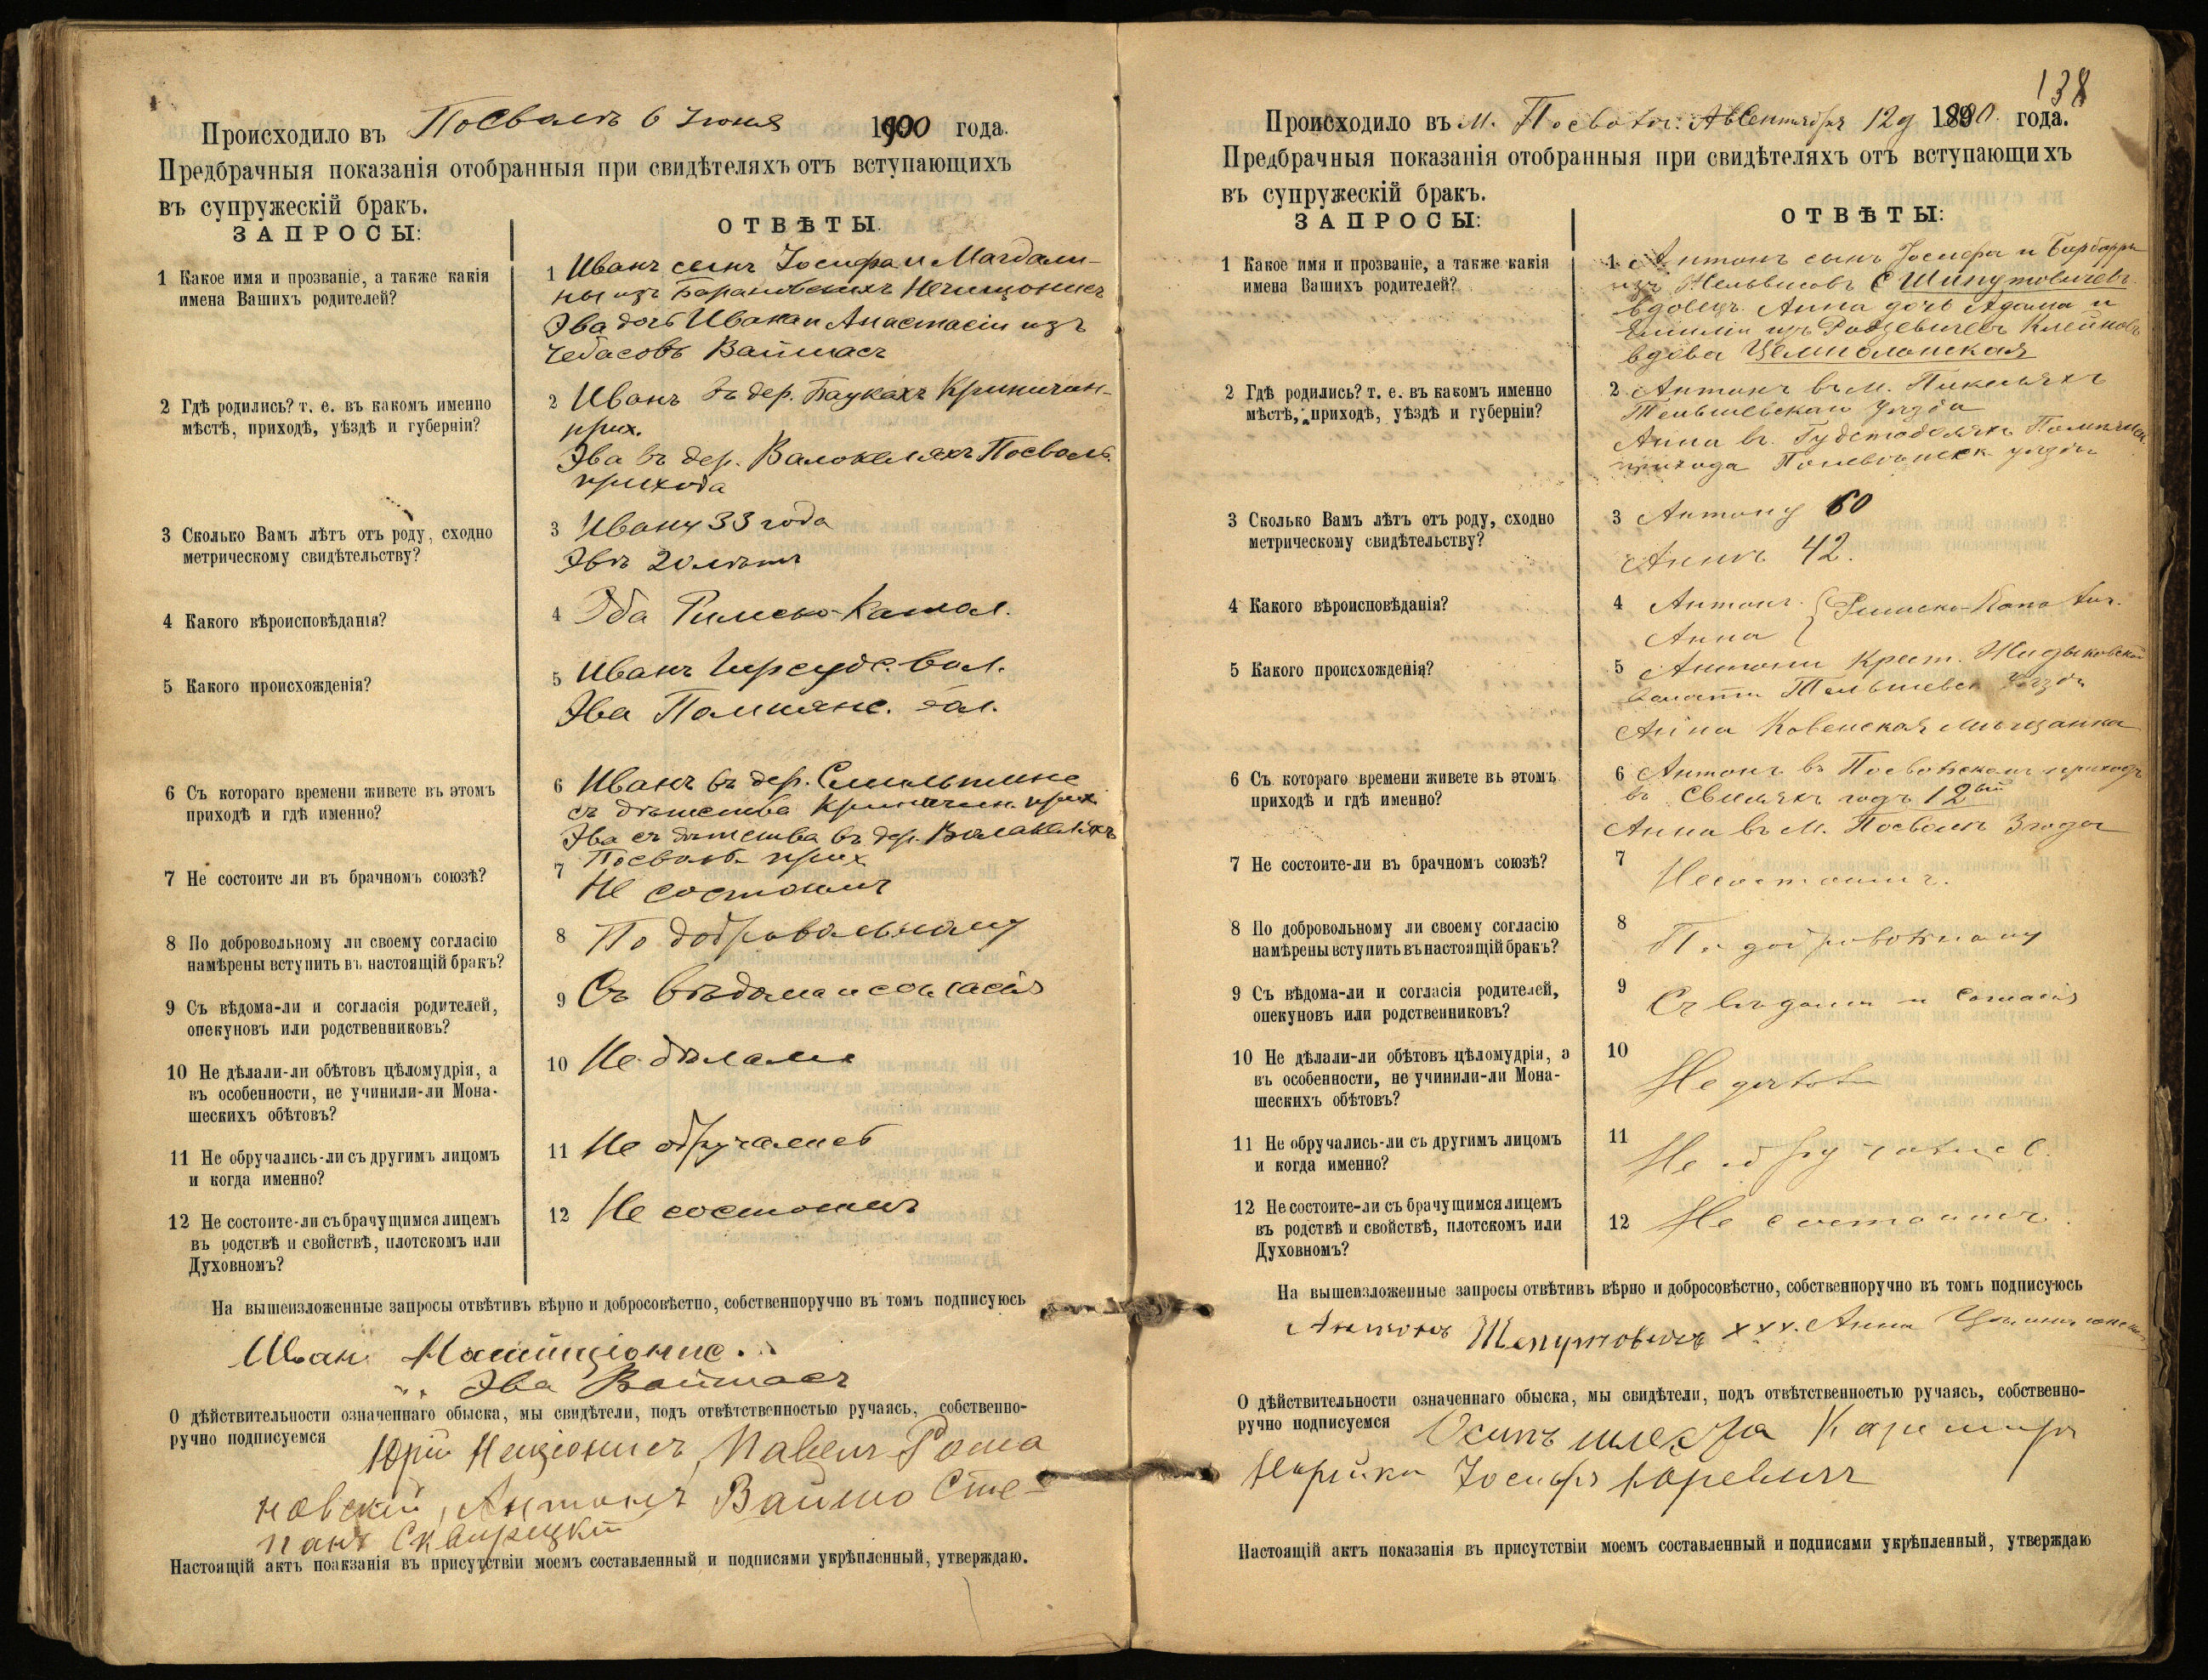 Происходило въ Посволь 6 Іюня 1900 года.
Предбрачныя показанія отобранныя при свидѣтеляхъ отъ вступающихъ
въ супружескій бракъ.
ЗАПРОСЫ:
ОТВѢТЫ.
1 Какое имя и прозваніе, а также какія
имена Вашихъ родителей?
1 Иванъ сынъ Іосифа и Магдали-
ны изъ Барановскихъ
Эва дочь Ивана и Анастасіи изъ
Чебасовъ Вайтасъ
2 Гдѣ родились? т. е. въ какомъ именно
мѣстѣ, приходѣ, уѣздѣ и губерніи?
2 Иванъ въ дер. Баукахъ Криничин-
прих.
Эва въ дер. Посволь.
прихода
3 Сколько Вамъ лѣтъ отъ роду, сходно
метрическому свидѣтельству?
3 Ивану 33 года
Эвѣ 20 лѣтъ
4 Какого вѣроисповѣданія?
4 Оба Римско-Катол.
5 Какого происхожденія?
5 Иванъ вол.
Эва Помпянс. вол.
6 Съ котораго времени живете въ этомъ
приходѣ и гдѣ именно?
6 Иванъ въ дер.
съ дѣтства Криничин. прих.
Эва съ дѣтства въ дер.
Посволь. прих
7 Не состоите ли въ брачномъ союзѣ?
7 Не состоимъ
8 По добровольному ли своему согласію
намѣрены вступить въ настоящій бракъ?
8 По добровольному
9 Съ вѣдома-ли и согласія родителей,
опекуновъ или родственниковъ?
9 Съ вѣдома и согласія
10 Не дѣлали-ли обѣтовъ цѣломудрія, а
въ особенности, не учинили-ли Мона-
шескихъ обѣтовъ?
10 Не дѣлали
11 Не обручались-ли съ другимъ лицомъ
и когда именно?
11 Не обручались
12 Не состоите-ли съ брачущимся лицемъ
въ родствѣ и свойствѣ, плотскомъ или
Духовномъ?
12 Не состоимъ
На вышеизложенные запросы отвѣтивъ вѣрно и добросовѣстно, собственноручно въ томъ подписуюсь
Иван
Эва Вайтасъ
О дѣйствительности означеннаго обыска, мы свидѣтели, подъ отвѣтственностью ручаясь, собственно-
ручно подписуемся Юрій Павелъ Рома
новскій, Антонъ Сте-
панъ
Настоящій актъ поакзанія въ присутствіи моемъ составленный и подписями укрѣпленный, утверждаю.
138
Происходило въ м. Сентября 12 д 1890. года.
Предбрачныя показанія отобранныя при свидѣтеляхъ отъ вступающихъ
въ супружескій бракъ.
ЗАПРОСЫ:
ОТВѢТЫ:
1 Какое имя и прозваніе, а также какія
имена Вашихъ родителей?
1 Антонъ сынъ Іосифа и Барбары
изъ Шипутовичевъ
вдовецъ. Анна дочь Адама и
Эмиліи изъ Радзевичевъ
вдова
2 Гдѣ родились? т. е. въ какомъ именно
мѣстѣ, приходѣ, уѣздѣ и губерніи?
2 Антонъ въ м.
Тельшевскаго уѣзда
Анна въ
прихода Поневѣжск уѣзда
3 Сколько Вамъ лѣтъ отъ роду, сходно
метрическому свидѣтельству?
3 Антону 60
Аннѣ 42.
4 Какого вѣроисповѣданія?
4 Антонъ. Римско-Католич.
Анна
5 Какого происхожденія?
5 Антонъ Крест.
волости Тельшевск уѣзда
Анна Ковенская мѣщанка
6 Съ котораго времени живете въ этомъ
приходѣ и гдѣ именно?
6 Антонъ въ Посвольскомъ приходѣ
въ годъ 12ый
Анна въ м. Посволь 3 года
7 Не состоите-ли въ брачномъ союзѣ?
7 Не состоимъ.
8 По добровольному ли своему согласію
намѣрены вступить въ настоящій бракъ?
8 По добровольному
9 Съ вѣдома-ли и согласія родителей,
опекуновъ или родственниковъ?
9 Съ вѣдома и согласія
10 Не дѣлали-ли обѣтовъ цѣломудрія, а
въ особенности, не учинили-ли Мона-
шескихъ обѣтовъ?
10 Не дѣлали
11 Не обручались-ли съ другимъ лицомъ
и когда именно?
11 Не обручались.
12 Не состоите-ли съ брачущимся лицемъ
въ родствѣ и свойствѣ, плотскомъ или
Духовномъ?
12 Не состоимъ.
На вышеизложенные запросы отвѣтивъ вѣрно и добросовѣстно, собственноручно въ томъ подписуюсь
Антонъ Шепутовичъ ххх. Анна
О дѣйствительности означеннаго обыска, мы свидѣтели, подъ отвѣтственностью ручаясь, собственно-
ручно подписуемся Осипъ
Іосифъ Юревичъ
Настоящій актъ показанія въ присутствіи моемъ составленный и подписями укрѣпленный, утверждаю